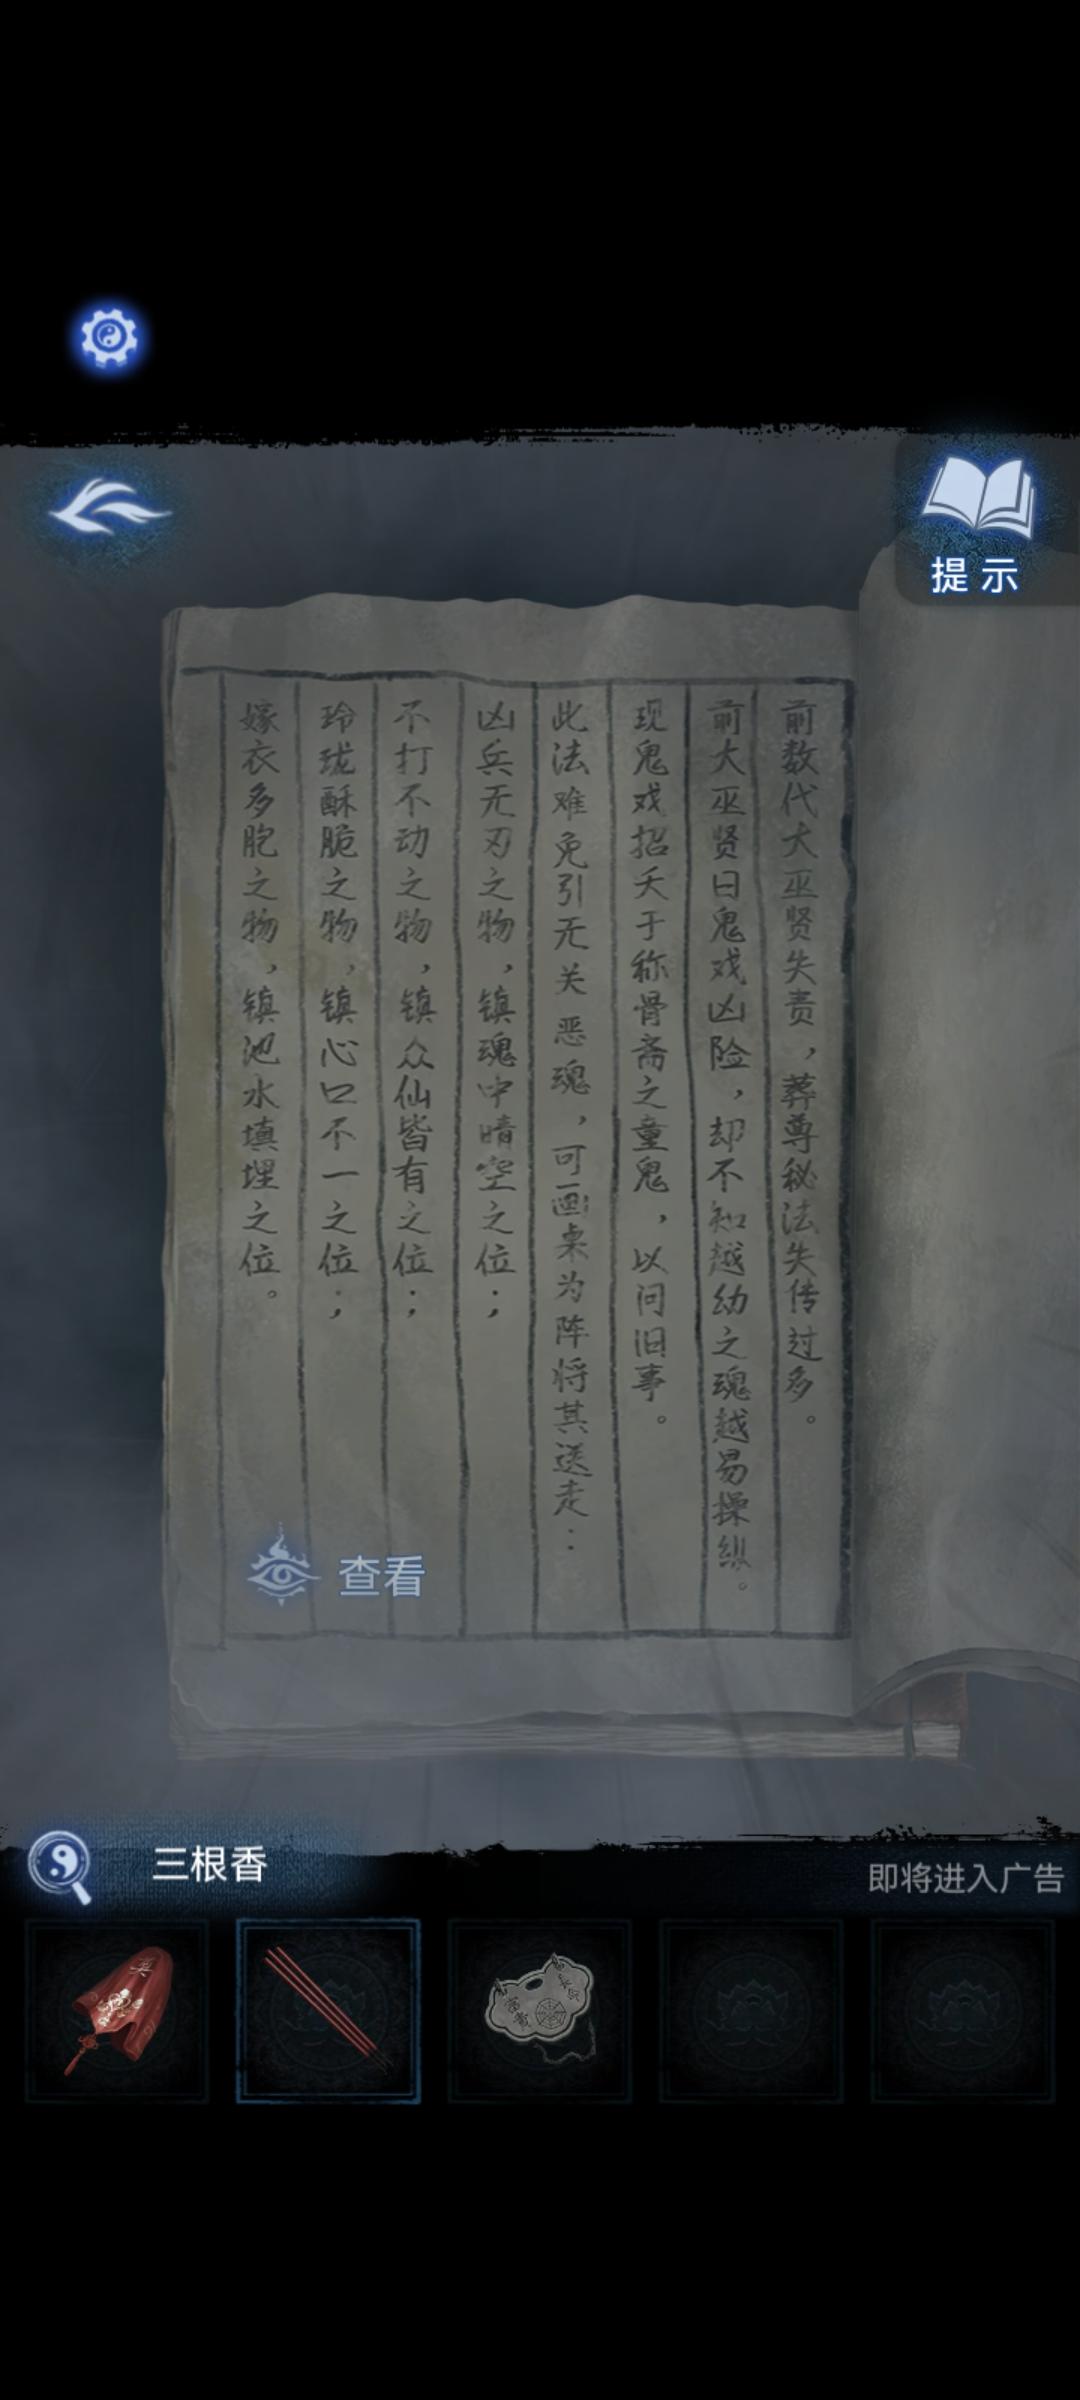 提示
前数代大巫贤失责，葬尊秘法失传过多。
前大巫贤曰鬼戏凶险，却不知越幼之魂越易操纵。
现鬼戏招夭于称骨斋之童鬼，以问旧事。
此法难免引无关恶魂，可画桌为阵将其送走：
凶兵无刃之物，镇魂中晴空之位；
不打不动之物，镇众仙皆有之位；
玲珑酥脆之物，镇心口不一之位；
嫁衣多胞之物，镇池水填埋之位。
查看
三根香
即将进入广告